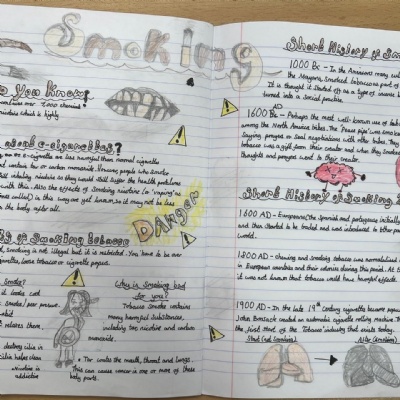 Smoking
You Know?
contains over 7,000 chemicals
nicotine which is highly
about e-cigarettes?
e-cigarette are less harmful than normal cigarette
contain tar or carbon monoxide. However people who smoke
still inhaling nicotine so they could still suffer the health problems
with this. Also the effects of smoking nicotine (or 'vaping' as
sometimes called) in this way are yet known, so it may not be less
the body after all.
DAngER
of Smoking Tobacco
smoking is not illegal but it is restricted. You have to be over
cigarettes, loose tobacco or cigarette papers.
Smoke?
it looks cool
smoke/peer pressure
habit
relaxes them.
destroy cilia in
cilia helps clean
Nicotine is
addictive
Why is smoking bad
for you?
Tobacco smoke contains
many harmful substances,
including tar, nicotine and carbon
monoxide.
Tar coats the mouth, throat and lungs.
This can cause cancer in one or more of these
body parts.
Short History of
1000 Bc - In the Americas many
the Mayans, smoked tobacco as part of
It is thought it started as a type of incense
turned into a social practice.
1600 AD - Perhaps the most well-known use of
among the North America tribes. The Peace pipe was smoked
Saying prayers or seal negotiation with other tribes. They
tobacco was a gift from their creator and when they smoked
thoughts and prayers went to their creator.
Short History of Smoking
1600 AD - Europeans (the Spanish and Portuguese initially
and then started to be traded and was introduced to other
world.
1800 AD - chewing and smoking tobacco was normalised
in European countries and their colonies during this period. At
it was not known that tobacco could have harmful effects.
1900 AD - In the late 19th century cigarettes became
John Bonsack created an automatic cigarette rolling machine. This
the first most of the Tobacco industry that exists today.
Start (not smoking)
After (smoking)